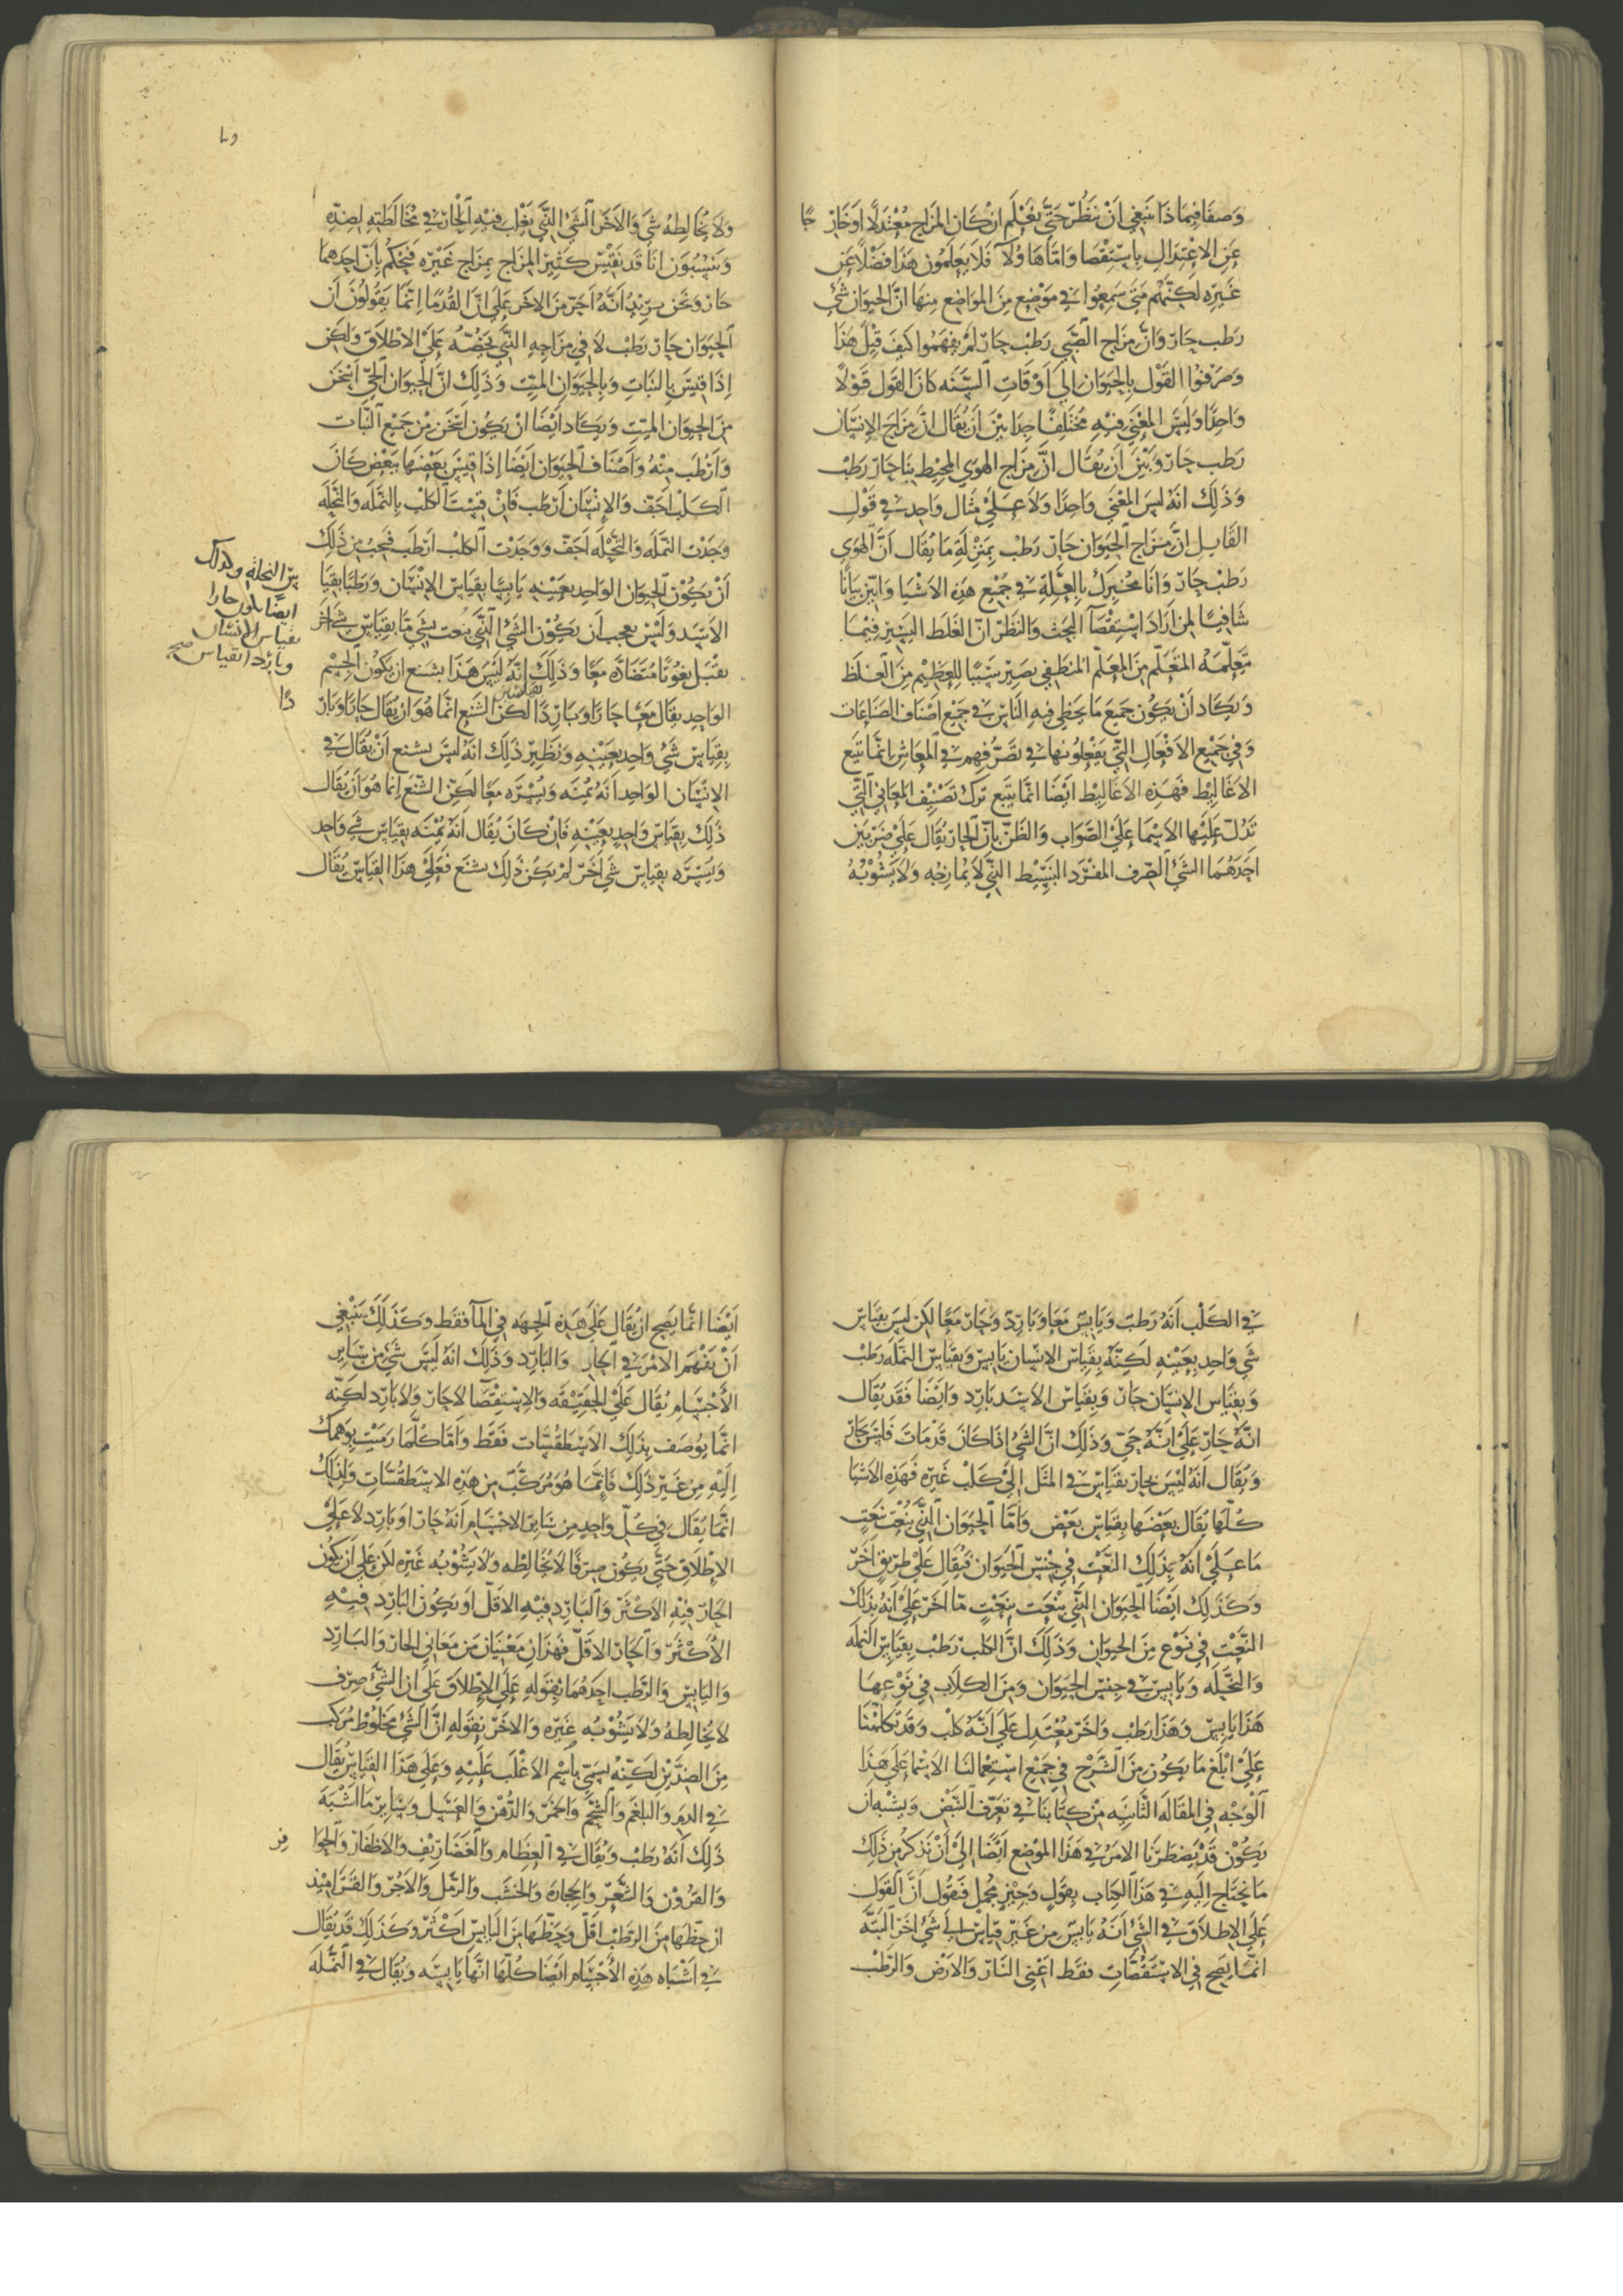 وَصفَا فيمَاذَا ينبَغي اَنْ ينظُرَ حَتّى يَعْلَم ان كَان المزَاج مُعْتدلًا اوَ خَارجًا
عَنِ الاِعْتِدَالِ باسْتِقْصَا وَامّا هَاوُلآ فَلا يَعلَمُون هَذَا فَضْلًا عَن
غَيرِه لكنّهُم مَتى سَمِعُوا في مَوْضِع مِنَ المَوَاضِع مِنهَا انَّ الحيوَان شي
رَطب حَارّ وَانَّ مزَاج الصَّبي رَطْب حَارّ لمْ يفهَمُوا كيَف قِيْل هَذا
وَصَرَفوُا القَوْل بِالحيَوَان اِلَى اَوْقَاتِ السَّنَه كانَ القَول قَوْلًا
وَاحدًا وَلَيْسَ المعْنَى فيْهِ مُختَلِفًا جدًا بيْنَ اَن يُقَال انَّ مزَاجَ الاِنسَان
رَطب حَارّ وَبَيْنَ ان يُقَال انَّ مزَاج الهَوى المحِيْط بنَا حَارّ رَطْب
وَذَلِك انَه ليْسَ المعْنَى وَاحدًا وَلَا عَلَى مثَال وَاحد في قَوْلِ
القَايل انَّ مزَاج الحيَوَان حَارّ رَطْب بمَنزِلَةِ مَا يُقَال انَّ الهوَى
رَطبْ حَارّ وَانَا مُخبِرك بالعِلّةِ في جَمْيع هَذِه الاَشيَا وَابيّن بيَانًا
شَافيًا لمن ارَادَ اسْتِقْصَآ البَحْث وَالنَظَر انّ الغَلَط اليَسير فيمَا
يتَعلّمهُ المتعَلّم مِنَ المعَلّم المنطَفي يصَير سَببًا للعَظيْم مِنَ الغلَظ
وَيكَاد اَنْ يَكُون جَميعَ مَا يخطى فيهِ النَاس في جَمْيع اَصنَاف الصّنَاعَات
وَفي جَمْيع الاَفْعَالِ التّي يَفْعلُونهَا في تصَرُّفهِم في المعَاش انّمَا يَتبَع
الاَغاليْط فَهَذِه الاَغاليْط ايَضًا انمَا يتبَع تَرك تصْنيْف المعَاني التّي
تَدُلّ عَليْها الاَسْمَا عَلَى الصَّوَاب وَالظَنّ بانّ الحَارّ يُقَال عَلَى ضَربَيْن
احَدهُمَا الشَيْ الصّرف المفْرَد البسيْط الذّي لَا يمَازجُه وَلَا يَشُوْبُهُ
وَلَا يُخَالِطهُ شَي وَالاَخَر الشَيْ الذّي يَغْلِب فيْهِ الحَارّ في مُخَالَطَتِهِ لِضِدّه
وَيَنْسَوْن انا قَد نقيْس كَثير المزَاج بمِزَاج غَيرِه فَنَحْكُم بأَنّ احدهمَا
حَارّ وَنحَن نريْد اَنّهُ اَحَرّ مِنَ الاخَر عَلى انّ القدمَا انّمَا يَقُولُونَ اَن
الحيَوَان حَارّ رَطْب لَا في مزَاجهِ الذّي يَخصُّهُ عَلَى الاطْلَاق وَلكن
اِذَا قيْسَ بِالنبَاتِ وَبِالحيَوَانِ الميّت وَذَلِك انَّ الحَيوَان الحَيّ اَسْخَن
مِنَ الحيوَان الميّت وَيكَاد ايْضًا انْ يكُون اَسْخَن مِنْ جَميْع النّبات
وَاَرْطَب مِنْهُ وَاَصْنَاف الحيوَان ايَضًا اِذَا قيْس بَعْضهَا ببَعْض كَانَ
الكَلب اجَفّ وَالاِنْسَان اَرْطَب فَانْ قِسْتَ الكلْب بِالنمْلَه وَالنّحْلَه
وَجَدْت النّمْلَه وَالنّحْلَه اَجَفّ وَوَجَدْت الكلْب ارْطَب فَيجَبُ من ذَلِك
اَنْ يَكُوْن الحيَوَان الوَاحِد بعَيْنِهِ يَابِسًا بِقيَاس الاِنْسَان وَرَطبًا بقيَا
س النحلة وكذلك
ايضًا يكون حارا
بقياس الانسان
وباردا بقياس صح
الاَسَد وَلَيْس بعجب اَن يَكُوْن الشَيْ الذّي يُنعَت بشيْ مَا بقيَاس شَيْ اَخَر
يقْبَل نعُوْتًا مُتضَادّه مَعًا وَذَلِك انّهُ ليَسَ هَذَا بشنع ان يَكُوْن الجسْم
الوَاحِد يقَال مَعًا حَارًا وَبَاردًا لكن الشنع انّمَا هُوَ ان يُقَال حَارًا وَباردًا
بِقيَاس شَيْ وَاحد بعَيْنِه وَنَظير ذَلِك انهُ ليَسَ بشنع اَنْ يُقَال في
الاِنْسَان الوَاحد اَنهُ يمْنَه وَيُسْرَه مَعًا لكن الشنَع اِنمَا هُوَ اَن يُقَال
ذَلِك بقيَاس وَاحدٍ بعَيْنه فَانْ كَانَ يُقَال انَهُ يمْنَه بقيَاس شَي وَاحد
وَيَسْرَه بقيَاس شَي اَخَر لمْ يَكُن ذَلِك بشنع فَعَلَى هَذَا القيَاس يُقَال
في الكَلْب انَهُ رَطبْ وَيَابِس مَعًا وَبَاردٌ وَحَارّ مَعًا لكن ليَسَ بقيَاس
شَي وَاحد بعَيْنهِ لكنّهُ بقيَاس الاِنسَان يَابِس وَبقيَاس النّمْلَه رَطبْ
وَبقيَاس الاِنسَان حَارّ وَبقيَاس الاَسَد بَارد وَايَضًا فَقَد يُقَال
انّهُ حَارّ عَلَى انّهُ حَيّ وَذَلِك انَّ الشَيْ اذَا كَانَ قَدْ مَاتَ فَليَس بحَارّ
وَيُقَال انَهُ ليْسَ بحَارّ بقيَاس في المثَل اِلَى كَلب غَيرِه فَهَذِه الاَشيَا
كُلّهَا يُقَال بَعْضَهَا بِقيَاس بَعْض وَامّا الحيَوَان الذّي يُنْعَت بنَعْتٍ
مَا عَلَى انَهُ بذَلِك النّعْت في جنْس الحيَوَان فَيُقَال عَلَى طرِيق اخَر
وَكَذَلِك ايَضًا الحيوَان الذّي ينْعَت بنعْتٍ مّا اخَر عَلَى اَنهُ بذَلِك
النّعْتِ في نَوْع مِنَ الحيَوَان وَذَلِك انَّ الكلبَ رَطبْ بِقيَاس النملَه
وَالنحْلَه وَيَابِسْ في جِنْس الحيَوَان وَمِنَ الكلَاب في نَوْعهَا
هَذَا يَابِس وَهَذَا رَطب وَاخَر مُعْتَدِل عَلَى اَنّهُ كلْب وَقَد تكَلّمْنَا
عَلَى ابْلَغ مَا يَكُون مِنَ الشَّرْح في جَميْع اسْتعْمَالنَا الاَسْمَا عَلَى هَذَا
الوَجْه في المقَالَه الثَّانيَه مِن كتَابنَا في تعَرّف النَبْض وَيشْبه اَن
يَكُوْن قَدْ يَضطَرّنَا الامْرُ في هَذَا الموْضِع ايَضًا اِلَى اَنْ نَذكُر مِن ذَلِك
مَا نحتَاج اِليَهِ في هَذَا الكِتَاب بِقَولٍ وَجيْزٍ مجُمل فَنقُول اَنَّ القَول
عَلَى الاِطلَاق في الشَيْ اَنَهُ يَابِس مِن غَير قيَاس اِلَى شَيْ اَخَر البَتَه
انّمَا يَصح في الاِسْتَقُصّاتِ فقَط اعْني النَار وَالارْض وَالرّطْب
ايْضًا انّمَا يَصِح ان يُقَال عَلَى هَذِه الجهَه في المآ فقَط وكَذَلِك يَنْبغي
اَنْ يَفْهَم الاَمْر في الحَارّ وَالبَارد وَذَلِك انَهُ لَيْسَ شَيْ مِن سَاير
الأَجْسَامِ يُقَال عَلَى الحَقيْقه وَالاِسْتِقْصَا لَا حَارّ وَلَا بَارد لكنّه
انّمَا يوُصَف بذَلِك الاسْطَقُسَّات فَقَط وَامّا كُلّمَا رَمَيْت بوَهمك
اِلَيْهِ مِن غَيرِ ذَلِك فَاِنّمَا هُوَ مُرَكّبٌ مِن هَذِه الاِسْطَقُسَّات وَلِذَلِك
انّمَا يُقَال في كُلّ وَاحِد مِن سَاير الاجْسَام انَهُ حَارّ اوَ بَارد لَا عَلَى
الاِطلَاق حَتّى يَكُون صِرْفًا لَا يُخَالِطُه وَلَا يَشُوْبُه غَيرِه لكن عَلَى اَن يَكُون
الحَارّ فيْهِ الاكْثَرَ وَالبَارد فيْهِ الاقَلّ اَو يَكُون البَارد فيْهِ
الأكْثَرَ وَالحَارّ الاقَلّ فَهَذَانِ مَعْنيَان مِن مَعَاني الحَارّ وَالبَارد
وَاليَابِس وَالرَّطب احَدهُمَا بقَوله عَلَى الاِطلَاق عَلَى ان الشَّيْ صِرْف
لَا يُخَالِطهُ وَلَا يَشُوْبُه غَيرِه وَالاخَر بقَولهِ انَّ الشَيْ مَخْلوُط مُرَكب
مِنَ الضِدَّيْنِ لكنّهُ يسَمّى باسْم الاغْلَب عَلَيْهِ وَعَلَى هَذَا القيَاس يُقَال
في الدَمِ وَالبَلغَم وَالشَّحْم وَالخمَرْ وَالدُّهْنِ وَالعَسَل وَسَاير مَا اَشْبَهَ
ذَلِك اَنهُ رَطبْ وَيُقَال في العِظَام وَالغَضَاريْف وَالاظَفَار وَالحوَافر
وَالقرُوْن وَالشَّعْر وَالحجَارَه وَالخشَب وَالرَّمل وَالآجُرّ وَالقَرَاميْد
ان حظّهَا مِنَ الرَطبْ اقَلّ وَحَظّهَا مِنَ اليَابِس اكْثَر وَكَذَلِك قَد يُقَال
في اَشْبَاه هَذِه الأَجْسَام ايَضًا كُلّهَا انّهَا يَابسَه وَيُقَال في النّمْلَه